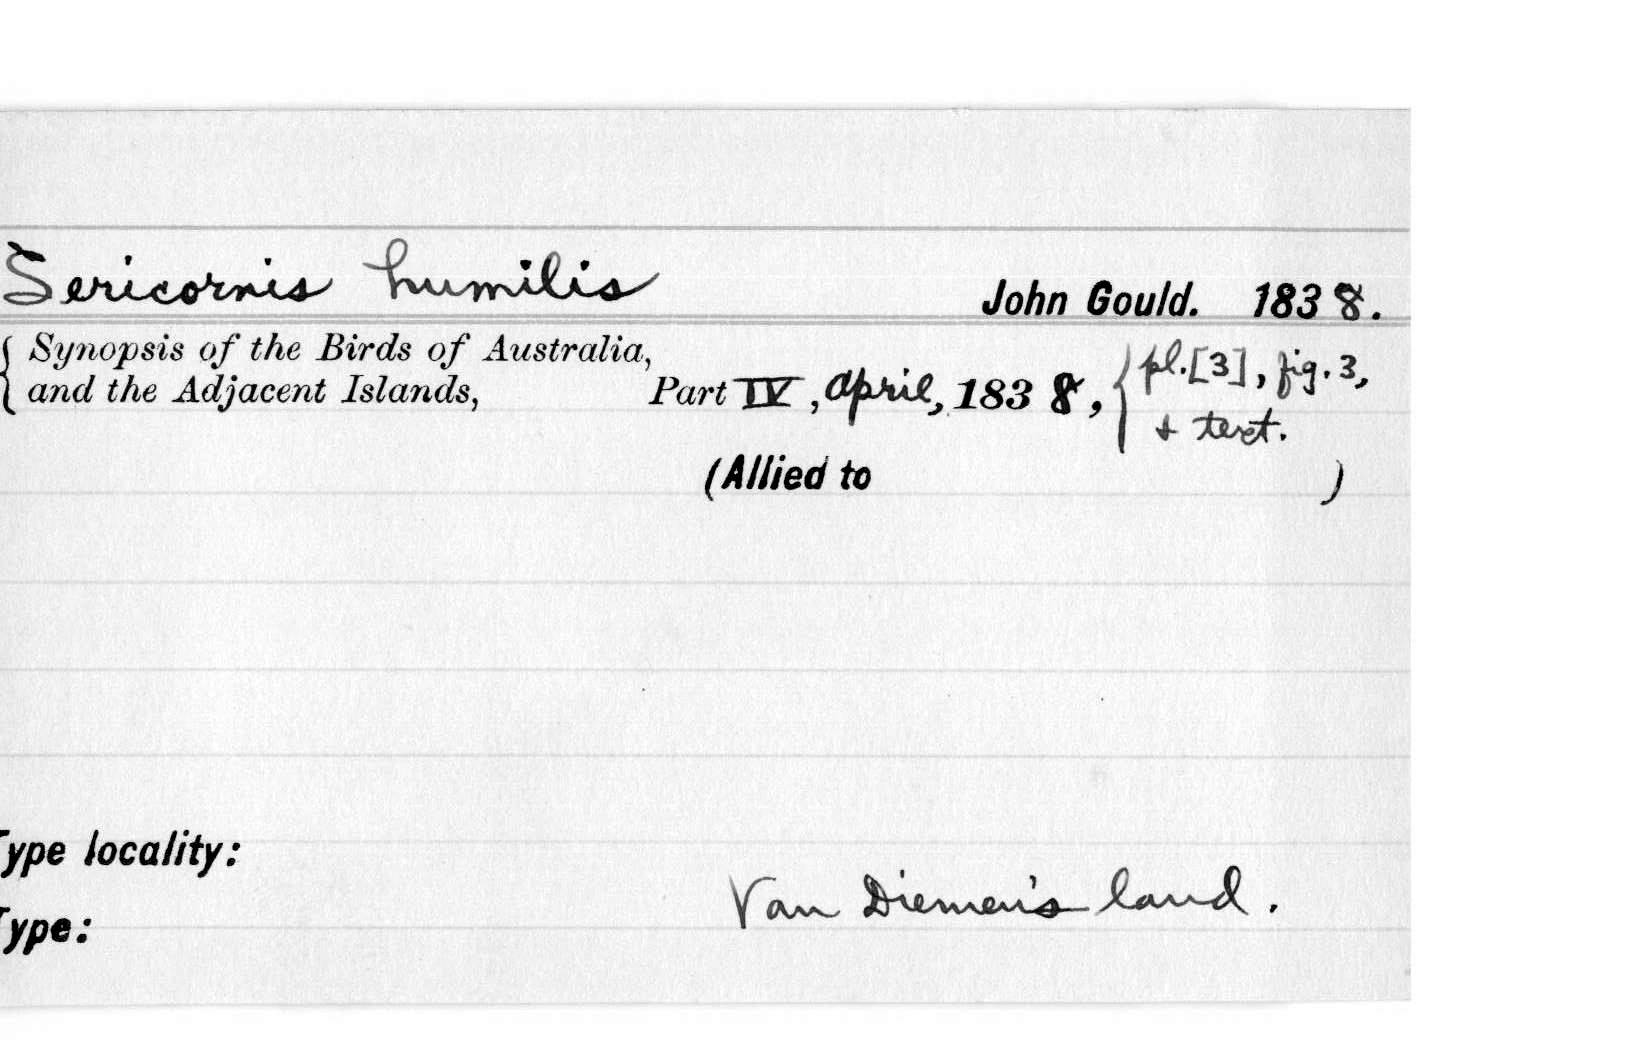 Sericornis humilis John Gould. 1838.
{ Synopsis of the Birds of Australia,
and the Adjacent Islands, Part IV, April, 1838, { pl.[3], fig. 3,
& text.
(Allied to )
Type locality:
Van Diemen's land.
Type: